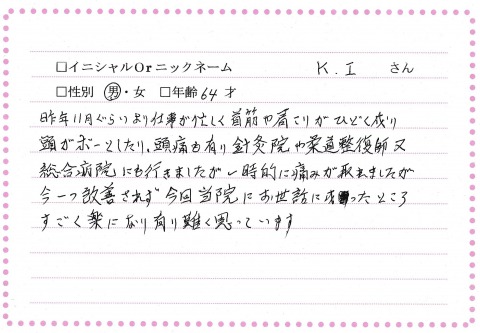 □イニシャルOrニックネーム K.I さん
□性別 男・女 □年齢 64 才
昨年11月ぐらいより仕事が忙しく首筋や肩こりがひどく成り
頭がボーとしたり、頭痛も有り針灸院や柔道整復師又
総合病院にも行きましたが一時的に痛みが取れましたが
今一つ改善されず今回当院にお世話に成ったところ
すごく楽になり有り難く思っています